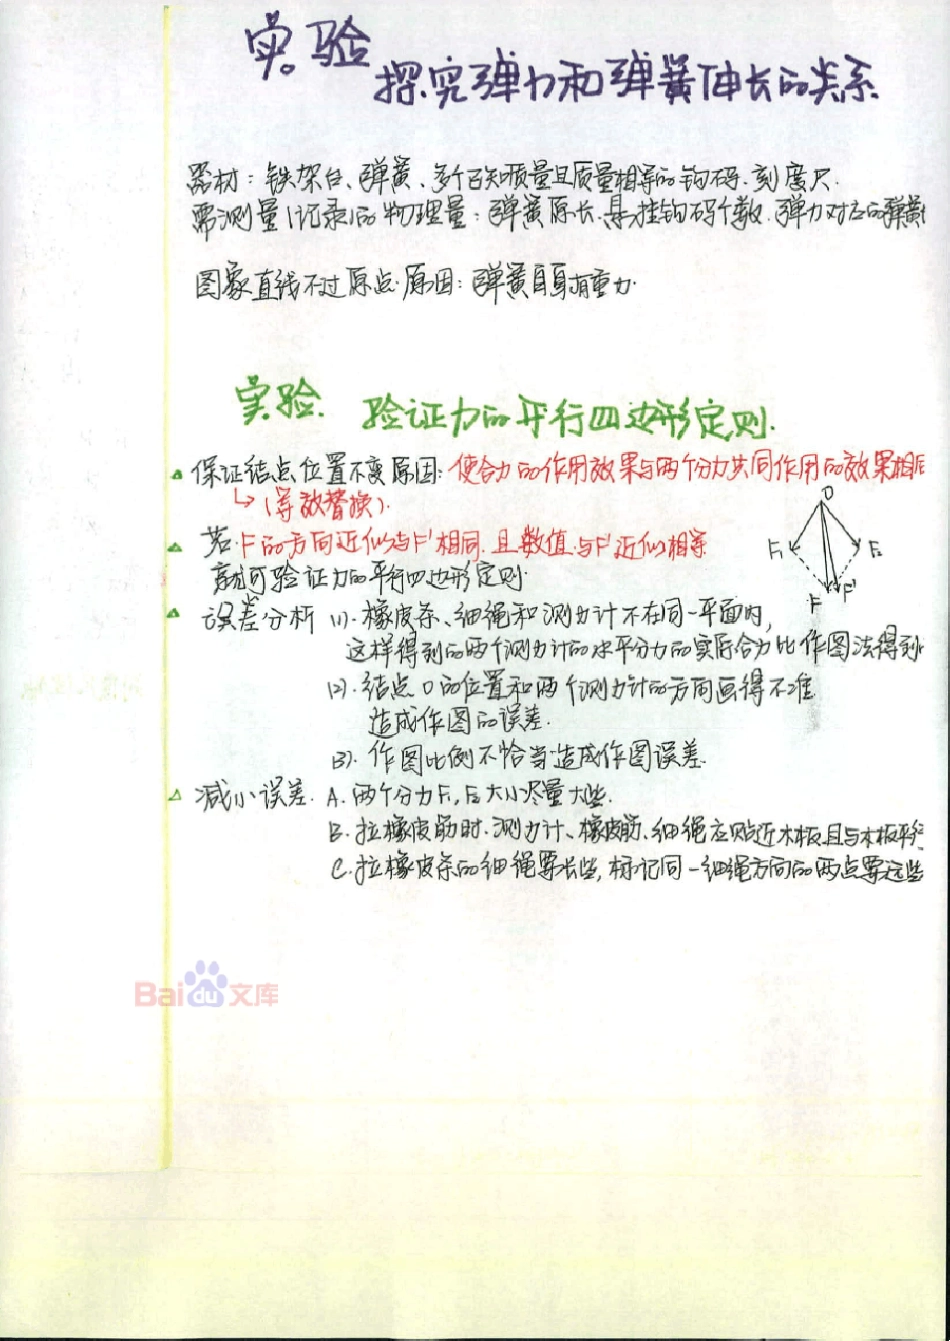 实验
探究弹力和弹簧伸长的关系
器材：铁架台、弹簧、多个已知质量且质量相等的钩码、刻度尺.
需测量(记录)的物理量：弹簧原长、悬挂钩码个数、弹力对应的弹簧
图象直线不过原点原因：弹簧自身有重力.
实验. 验证力的平行四边形定则.
保证结点位置不变原因：使合力的作用效果与两个分力共同作用的效果相同
↳(等效替换).
若F的方向近似与F'相同.且数值与F'近似相等
就可验证力的平行四边形定则.
O
F₁
F₂
F
F'
误差分析 (1).橡皮条、细绳和测力计不在同一平面内,
这样得到的两个测力计的水平分力的实际合力比作图法得到
(2).结点O的位置和两个测力计的方向画得不准
造成作图的误差.
(3).作图比例不恰当造成作图误差.
减小误差. A.两个分力F₁,F₂大小尽量大些.
B.拉橡皮筋时.测力计、橡皮筋、细绳应贴近木板且与木板平行
C.拉橡皮条的细绳要长些,标记同一细绳方向的两点要远些
Baidu文库